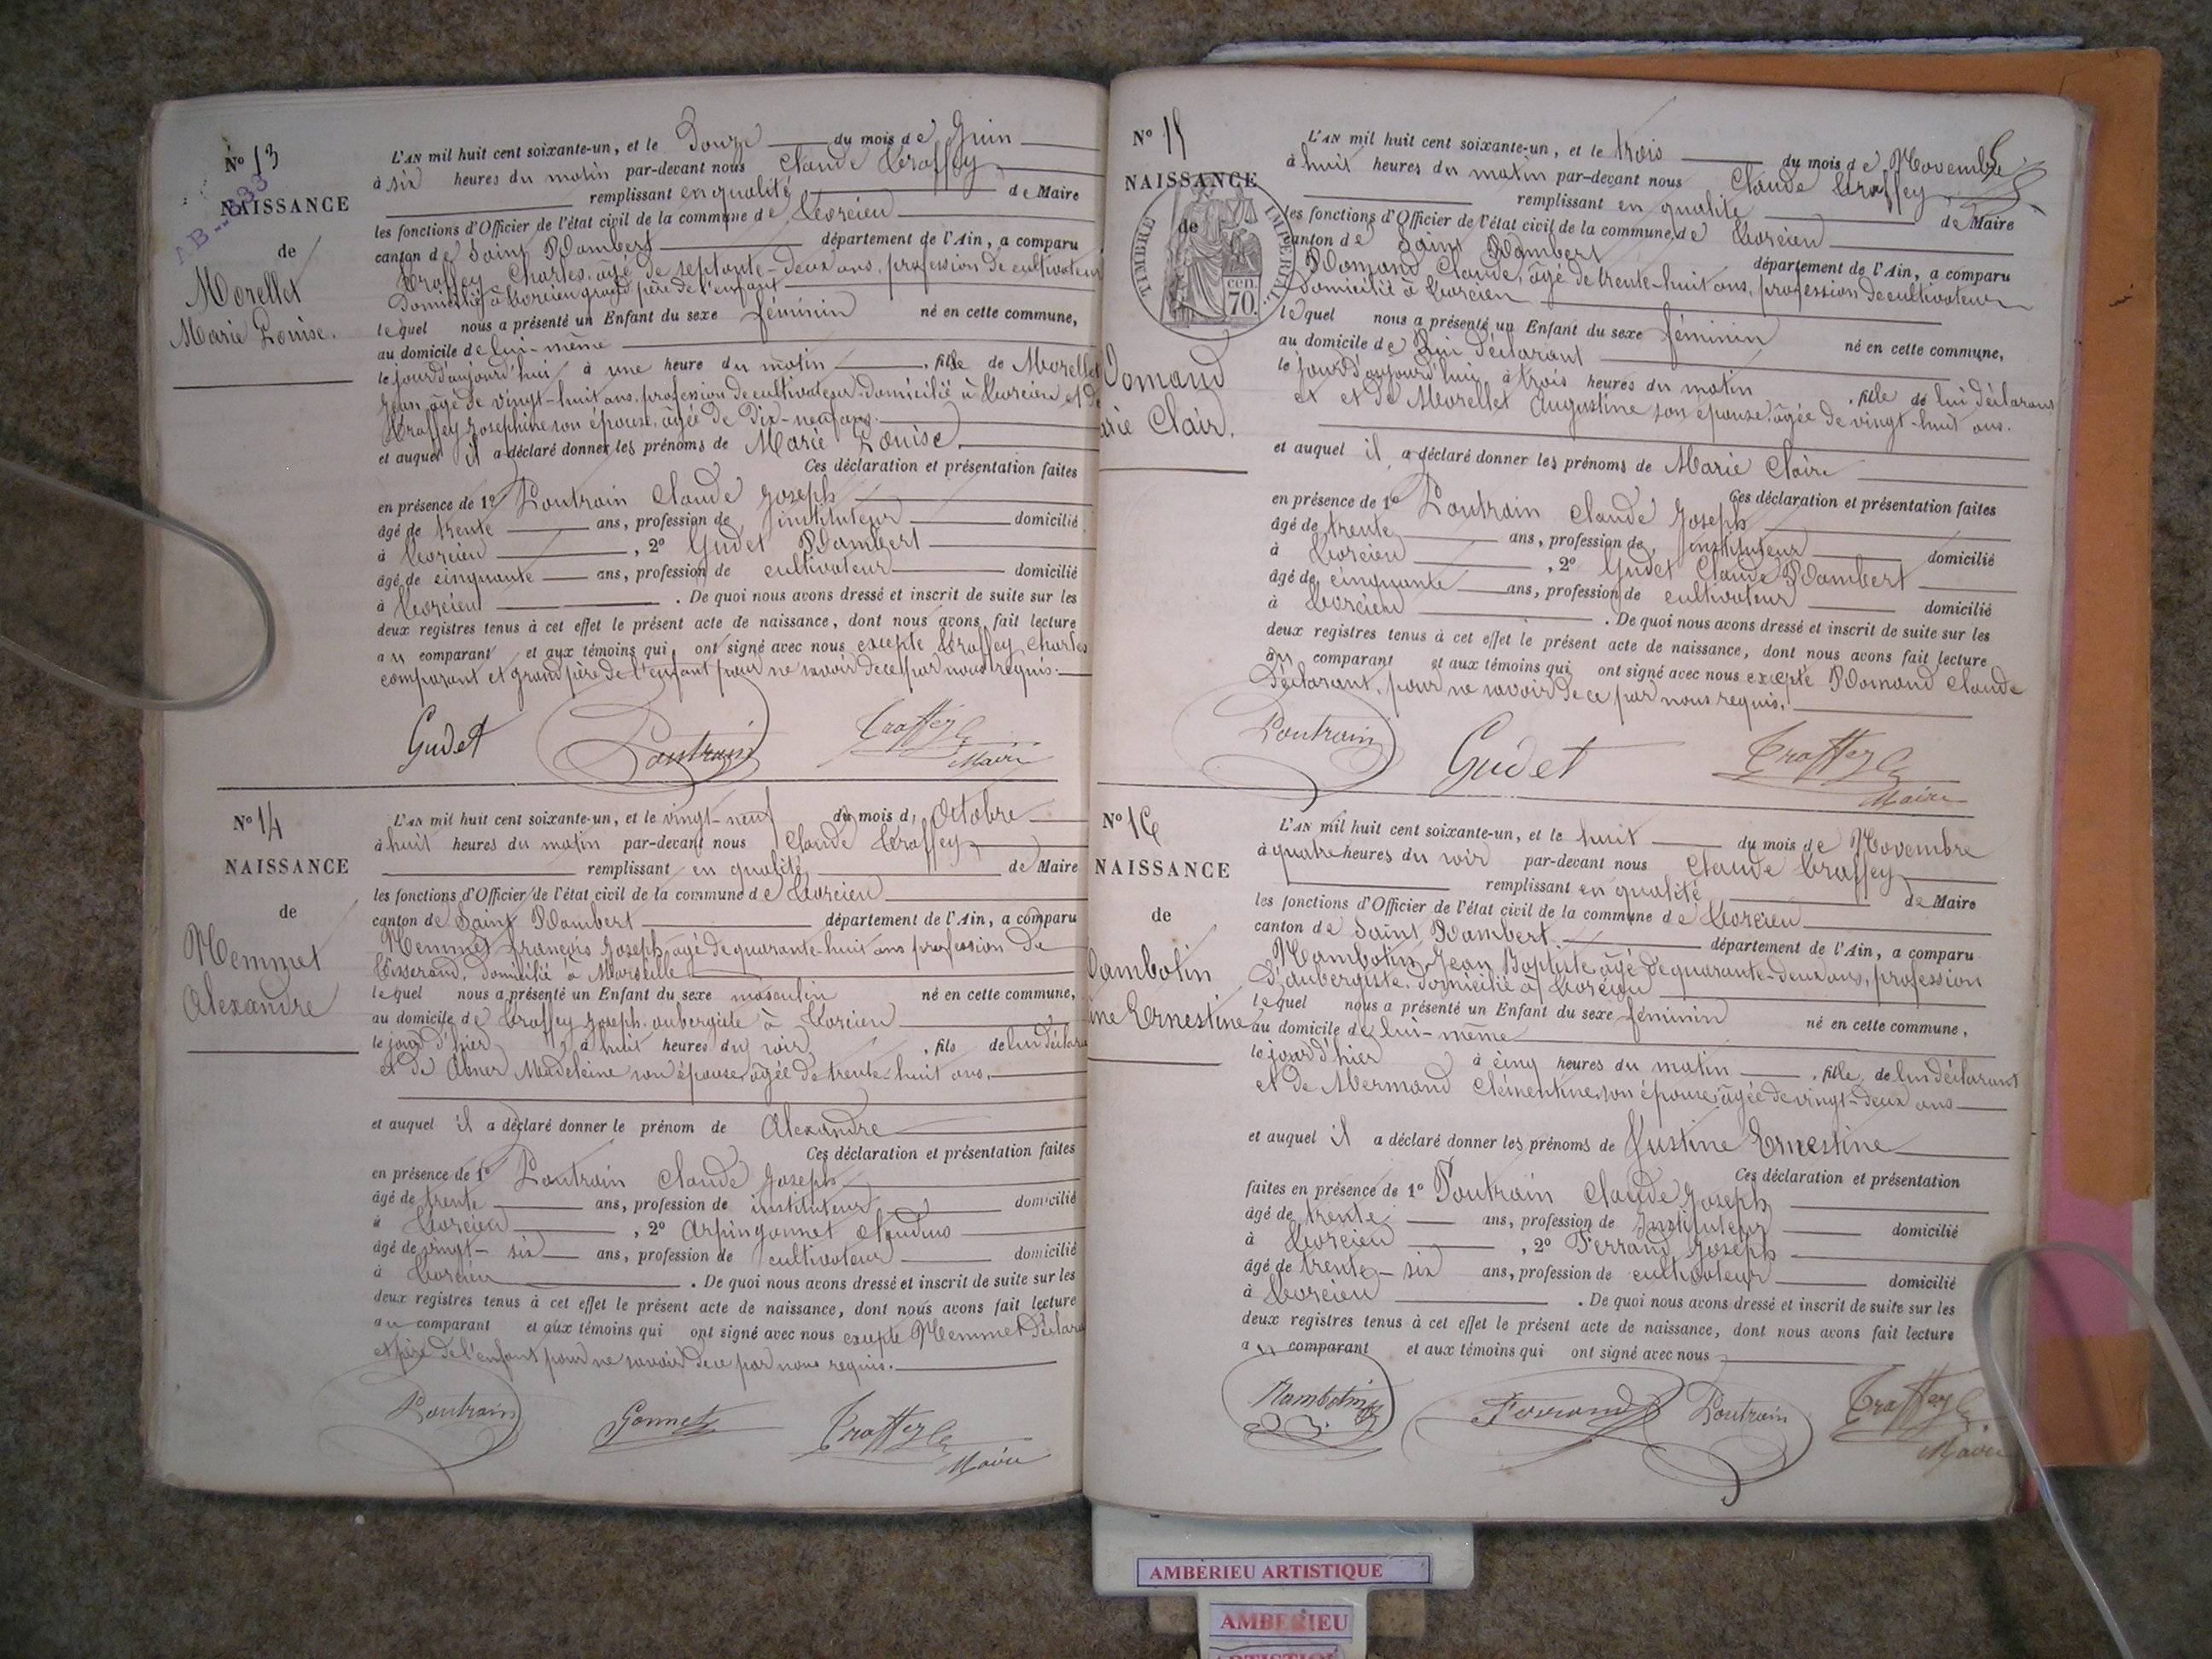 N° 13
NAISSANCE
de
Morellet
Marie Louise.
L'AN mil huit cent soixante-un, et le Douze du mois de Juin
à six heures du matin par-devant nous Claude Traffey
remplissant en qualité de Maire
les fonctions d'Officier de l'état civil de la commune de Torcieu
canton de Saint Rambert département de l'Ain, a comparu
Traffey Charles, âgé de septante-deux ans, profession de cultivateur
Domicilié à Torcieu grand père de l'enfant
lequel nous a présenté un Enfant du sexe féminin né en cette commune,
au domicile de lui-même
le jour d'aujourd'hui à une heure du matin, fille de Morellet
Jean, âgé de vingt-huit ans, profession de cultivateur, domicilié à Torcieu et de
Traffey Josephine son épouse, âgée de Dix-neuf ans.
et auquel il a déclaré donner les prénoms de Marie Louise.
Ces déclaration et présentation faites
en présence de 1° Poutrain Claude Joseph
âgé de trente ans, profession de instituteur domicilié
à Torcieu, 2° Gudet Rambert
âgé de cinquante ans, profession de cultivateur domicilié
à Torcieu. De quoi nous avons dressé et inscrit de suite sur les
deux registres tenus à cet effet le présent acte de naissance, dont nous avons fait lecture
au comparant et aux témoins qui ont signé avec nous excepté Traffey Charles
comparant et grand père de l'enfant pour ne savoir de ce par nous requis.
Gudet Poutrain Traffey Cde
Maire
N° 14
NAISSANCE
de
Memmet
Alexandre
L'AN mil huit cent soixante-un, et le vingt-neuf du mois d, Octobre
à huit heures du matin par-devant nous Claude Traffey
remplissant en qualité de Maire
les fonctions d'Officier de l'état civil de la commune de Torcieu
canton de Saint Rambert département de l'Ain, a comparu
Memmet françois Joseph âgé de quarante-huit ans profession de
Tisserand, domicilié à Marseille
lequel nous a présenté un Enfant du sexe masculin né en cette commune,
au domicile de Traffey Joseph aubergiste à Torcieu
le jour d'hier à huit heures du soir, fils de lui déclara
et de Abner Madeleine son épouse, âgée de trente-huit ans.
et auquel il a déclaré donner le prénom de Alexandre
Ces déclaration et présentation faites
en présence de 1° Poutrain Claude Joseph
âgé de trente ans, profession de instituteur domicilié
à Torcieu, 2° Arpin gonnet Claudius
âgé de vingt-six ans, profession de cultivateur domicilié
à Torcieu. De quoi nous avons dressé et inscrit de suite sur les
deux registres tenus à cet effet le présent acte de naissance, dont nous avons fait lecture
au comparant et aux témoins qui ont signé avec nous excepté Memmet Déclara
et père de l'enfant pour ne savoir de ce par nous requis.
Poutrain Gonnet Traffey Cde
Maire
N° 15
NAISSANCE
de
TIMBRE IMPERIAL
70 cen.
omand
arie Clair.
L'AN mil huit cent soixante-un, et le trois du mois de Novembre
à huit heures du matin par-devant nous Claude Traffey
remplissant en qualité de Maire
les fonctions d'Officier de l'état civil de la commune de Torcieu
canton de Saint Rambert département de l'Ain, a comparu
Romand Claude, âgé de trente-huit ans, profession de cultivateur
Domicilié à Torcieu
lequel nous a présenté un Enfant du sexe féminin né en cette commune,
au domicile de Lui Déclarant
le jour d'aujourd'hui à trois heures du matin, fille de lui déclarant
et et de Morellet Augustine son épouse, âgée de vingt-huit ans.
et auquel il a déclaré donner les prénoms de Marie Claire
Ces déclaration et présentation faites
en présence de 1° Poutrain Claude Joseph
âgé de trente ans, profession de Instituteur domicilié
à Torcieu, 2° Gudet Claude Rambert
âgé de cinquante ans, profession de cultivateur domicilié
à Torcieu. De quoi nous avons dressé et inscrit de suite sur les
deux registres tenus à cet effet le présent acte de naissance, dont nous avons fait lecture
au comparant et aux témoins qui ont signé avec nous excepté Romand Claude
Déclarant, pour ne savoir de ce par nous requis.
Poutrain Gudet Traffey Cde
Maire
N° 16
NAISSANCE
de
ambotin
ine Ernestine
L'AN mil huit cent soixante-un, et le huit du mois de Novembre
à quatre heures du soir par-devant nous Claude Traffey
remplissant en qualité de Maire
les fonctions d'Officier de l'état civil de la commune de Torcieu
canton de Saint Rambert département de l'Ain, a comparu
Mambotin Jean Baptiste âgé de quarante-deux ans, profession
d'aubergiste, domicilié à Torcieu
lequel nous a présenté un Enfant du sexe féminin né en cette commune,
au domicile de lui-même
le jour d'hier à cinq heures du matin, fille de lui déclarant
et de Mermand Clémentine son épouse, âgée de vingt-deux ans
et auquel il a déclaré donner les prénoms de Justine Ernestine
Ces déclaration et présentation
faites en présence de 1° Poutrain Claude Joseph
âgé de trente ans, profession de Instituteur domicilié
à Torcieu, 2° Ferrand Joseph
âgé de trente-six ans, profession de cultivateur domicilié
à Torcieu. De quoi nous avons dressé et inscrit de suite sur les
deux registres tenus à cet effet le présent acte de naissance, dont nous avons fait lecture
au comparant et aux témoins qui ont signé avec nous
Mambotin Ferrand Poutrain Traffey Cde
Maire
AMBERIEU ARTISTIQUE
AMBERIEU
ARTISTIQUE